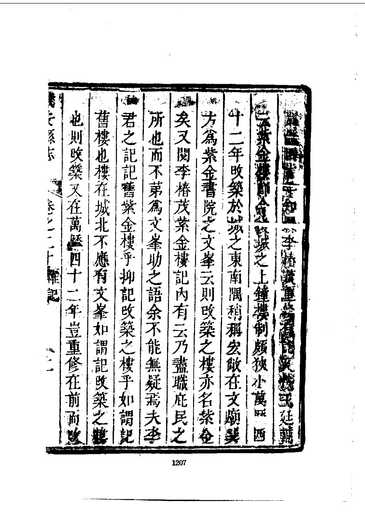 李椿茂重
紫金樓即今城之上鐘樓制頗狹小萬曆四
十二年改築於城之東南隅稍稱宏敞在文廟巽
方為紫金書院之文峯云則改築之樓亦名紫金
矣又閱李椿茂紫金樓記內有云乃盡職庀民之
所也而不第為文峯助之語余不能無疑焉夫李
君之記記舊紫金樓乎抑記改築之樓乎如謂記
舊樓也樓在城北不應有文峯如謂記改築之樓
也則改築又在萬曆四十二年豈重修在前而改
安縣志 卷之二十 雜記
1207